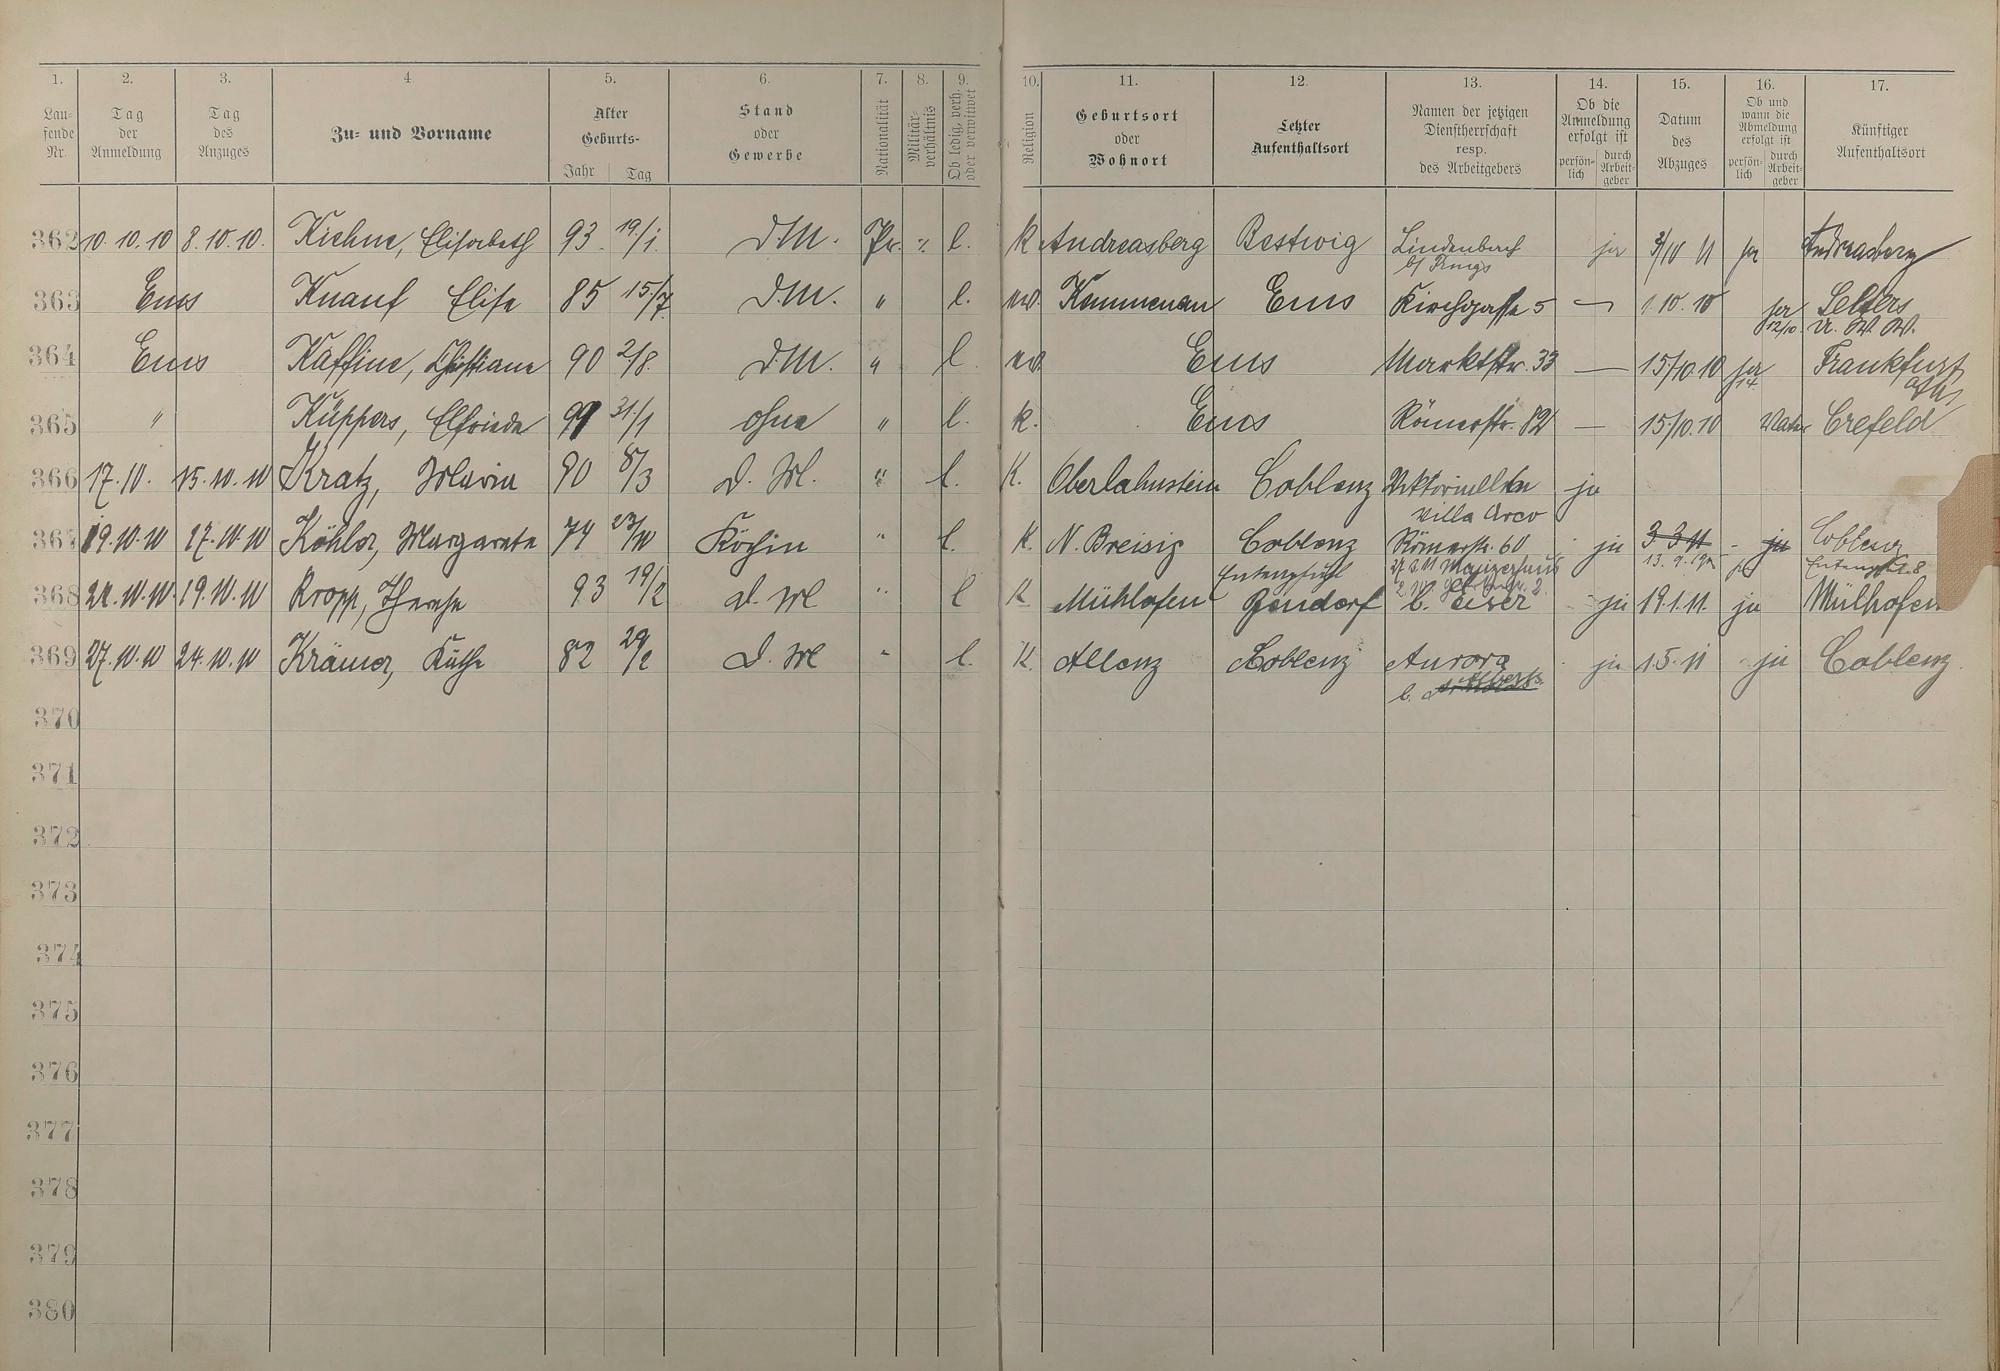 1. 2. 3. 4 5. 6. 7. 8. 9. 10. 11. 12. 13. 14. 15. 16. 17.
Lau-
fende
Nr.
Tag
der
Anmeldung
Tag
des
Anzuges
Zu- und Vorname
Alter
Geburts-
Jahr Tag
Stand
oder
Gewerbe
Nationalität
Militär-
verhältnis
Ob ledig, verh.
oder verwitwet
Religion
Geburtsort
oder
Wohnort
Letzter
Aufenthaltsort
Namen der jetzigen
Dienstherrschaft
resp.
des Arbeitgebers
Ob die
Anmeldung
erfolgt ist
persön-
lich
durch
Arbeit-
geber
Datum
des
Abzuges
Ob und
wann die
Abmeldung
erfolgt ist
persön-
lich
durch
Arbeit-
geber
Künftiger
Aufenthaltsort
362 10.10.10 8.10.10. Kiehne, Elisabeth 93 19/1. DM. Pr. l. k Andreasberg Bestwig Lindenbach ja 3/10 11 ja Andreasberg
363 Ems Knauf Elise 85 15/7. D.M. " l. Kemmenau Ems Kirchgasse 5 — 1.10.10 ja Selters
12/10. U. W. W.
364 Ems Kaffine, Christiane 90 2/8. DM. " l Ems Marktstr. 33 — 15/10.10 ja Frankfurt
14.
365 " Küppers, Elfriede 31/1 ohne " l. k. Ems Römerstr. 82 — 15/10.10 Vater Crefeld
366 17.10. 15.10.10 Kratz, Maria 90 8/3 D. M. " l. K. Oberlahnstein Coblenz ja
Villa Arco
367 19.10.10 17.10.10 Köhler, Margarete 74 23/10 Köchin " l. K. N. Breisig Coblenz Römerstr. 60 ja 3 3 11 - ja Coblenz
368 19.10.10 Kropp, Therese 93 19/2 D. M " l K Mühlofen Bendorf ja 19.1.11. ja Mülhofen
369 27.10.10 24.10.10 Krämer, Käthe 82 29/2 D. M " l. K. Allenz Coblenz Aurora ja 1.5.11 ja Coblenz.
370
371
372
373
374
375
376
377
378
379
380